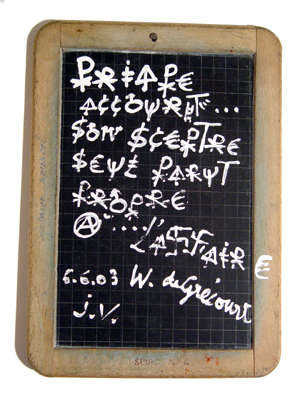 PRIAPE
ACCOURUT...
SON SCEPTRE
SEUL PARUT
PROPRE
Ⓐ ..... L'AFFAIRE
6.6.03 W. de Grécourt
J.V.